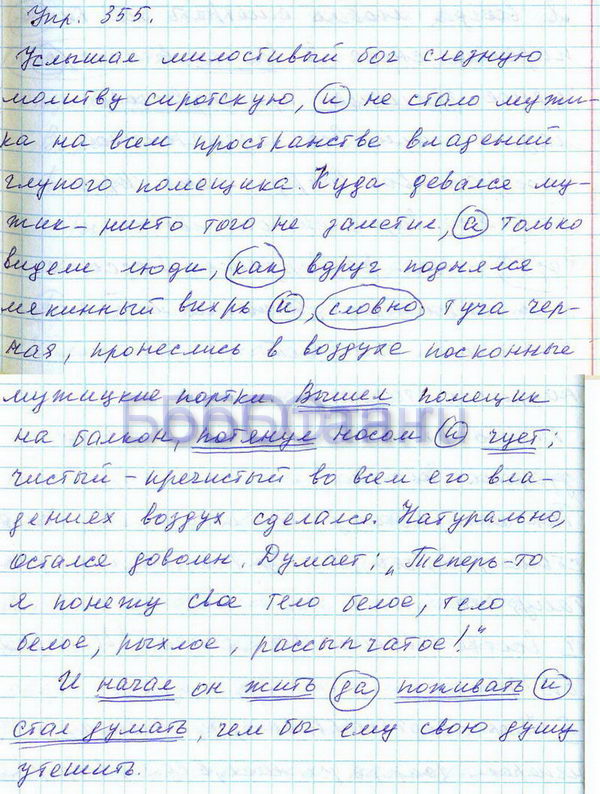 Упр. 355.
Услышал милостивый бог слезную
молитву сиротскую, и не стало мужи-
ка на всем пространстве владений
глупого помещика. Куда девался му-
жик – никто того не заметил, а только
видели люди, как вдруг поднялся
мякинный вихрь и, словно туча чер-
ная, пронеслись в воздухе посконные
мужицкие портки. Вышел помещик
на балкон, потянул носом и чует:
чистый – пречистый во всем его вла-
дениях воздух сделался. Натурально,
остался доволен. Думает: „Теперь-то
я понежу свое тело белое, тело
белое, рыхлое, рассыпчатое!“
И начал он жить да поживать и
стал думать, чем бы ему свою душу
утешить.